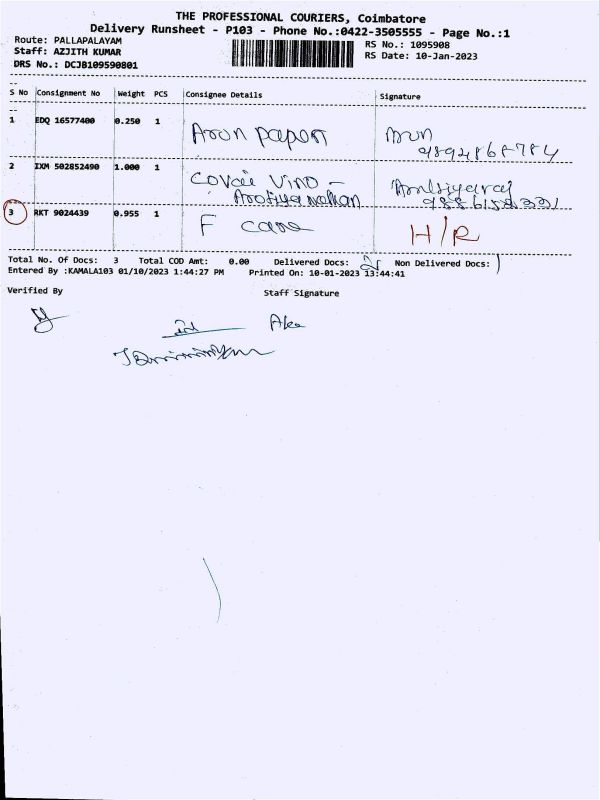 THE PROFESSIONAL COURIERS, Coimbatore
Delivery Runsheet - P103 - Phone No.:0422-3505555 - Page No.:1
Route: PALLAPALAYAM
RS No.: 1095908
Staff: AZJITH KUMAR
RS Date: 10-Jan-2023
DRS No.: DCJB109590801
S No Consignment No Weight PCS Consignee Details Signature
1 EDQ 16577400 0.250 1 Arun papers
2 IXM 502852490 1.000 1 Covai Vino -
3 RKT 9024439 0.955 1 F care H/R
Total No. Of Docs: 3 Total COD Amt: 0.00 Delivered Docs: 2 Non Delivered Docs: 1
Entered By :KAMALA103 01/10/2023 1:44:27 PM Printed On: 10-01-2023 13:44:41
Verified By Staff Signature